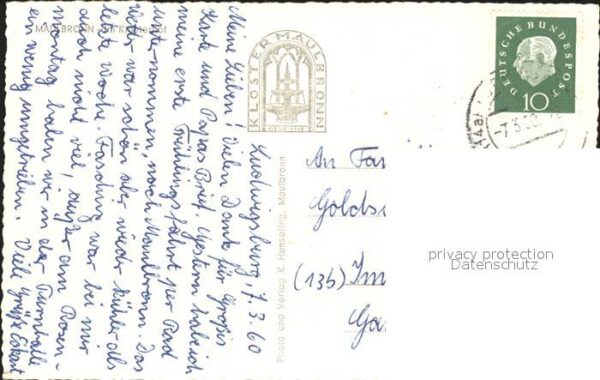 MAULBRONN Am Klosterhof
Ludwigsburg, 7.3.60
Meine Lieben! Vielen Dank für Großis
Karte und Papas Brief. Gestern habe ich
meine erste Frühlingsfahrt per Rad
unternommen, nach Maulbronn. Das
Wetter war schön aber wieder kühler als
letzte Woche. Fasching war bei mir
auch nicht viel, außer am Rosen-
montag haben wir in der Turnhalle
ein wenig umgetrieben. Viele Grüße Eckart
KLOSTER MAULBRONN
Photo und Verlag K. Henseling, Maulbronn
DEUTSCHE BUNDESPOST
10
-7.3.60
An Fam
Golds
(13b) Im
Ga
privacy protection
Datenschutz